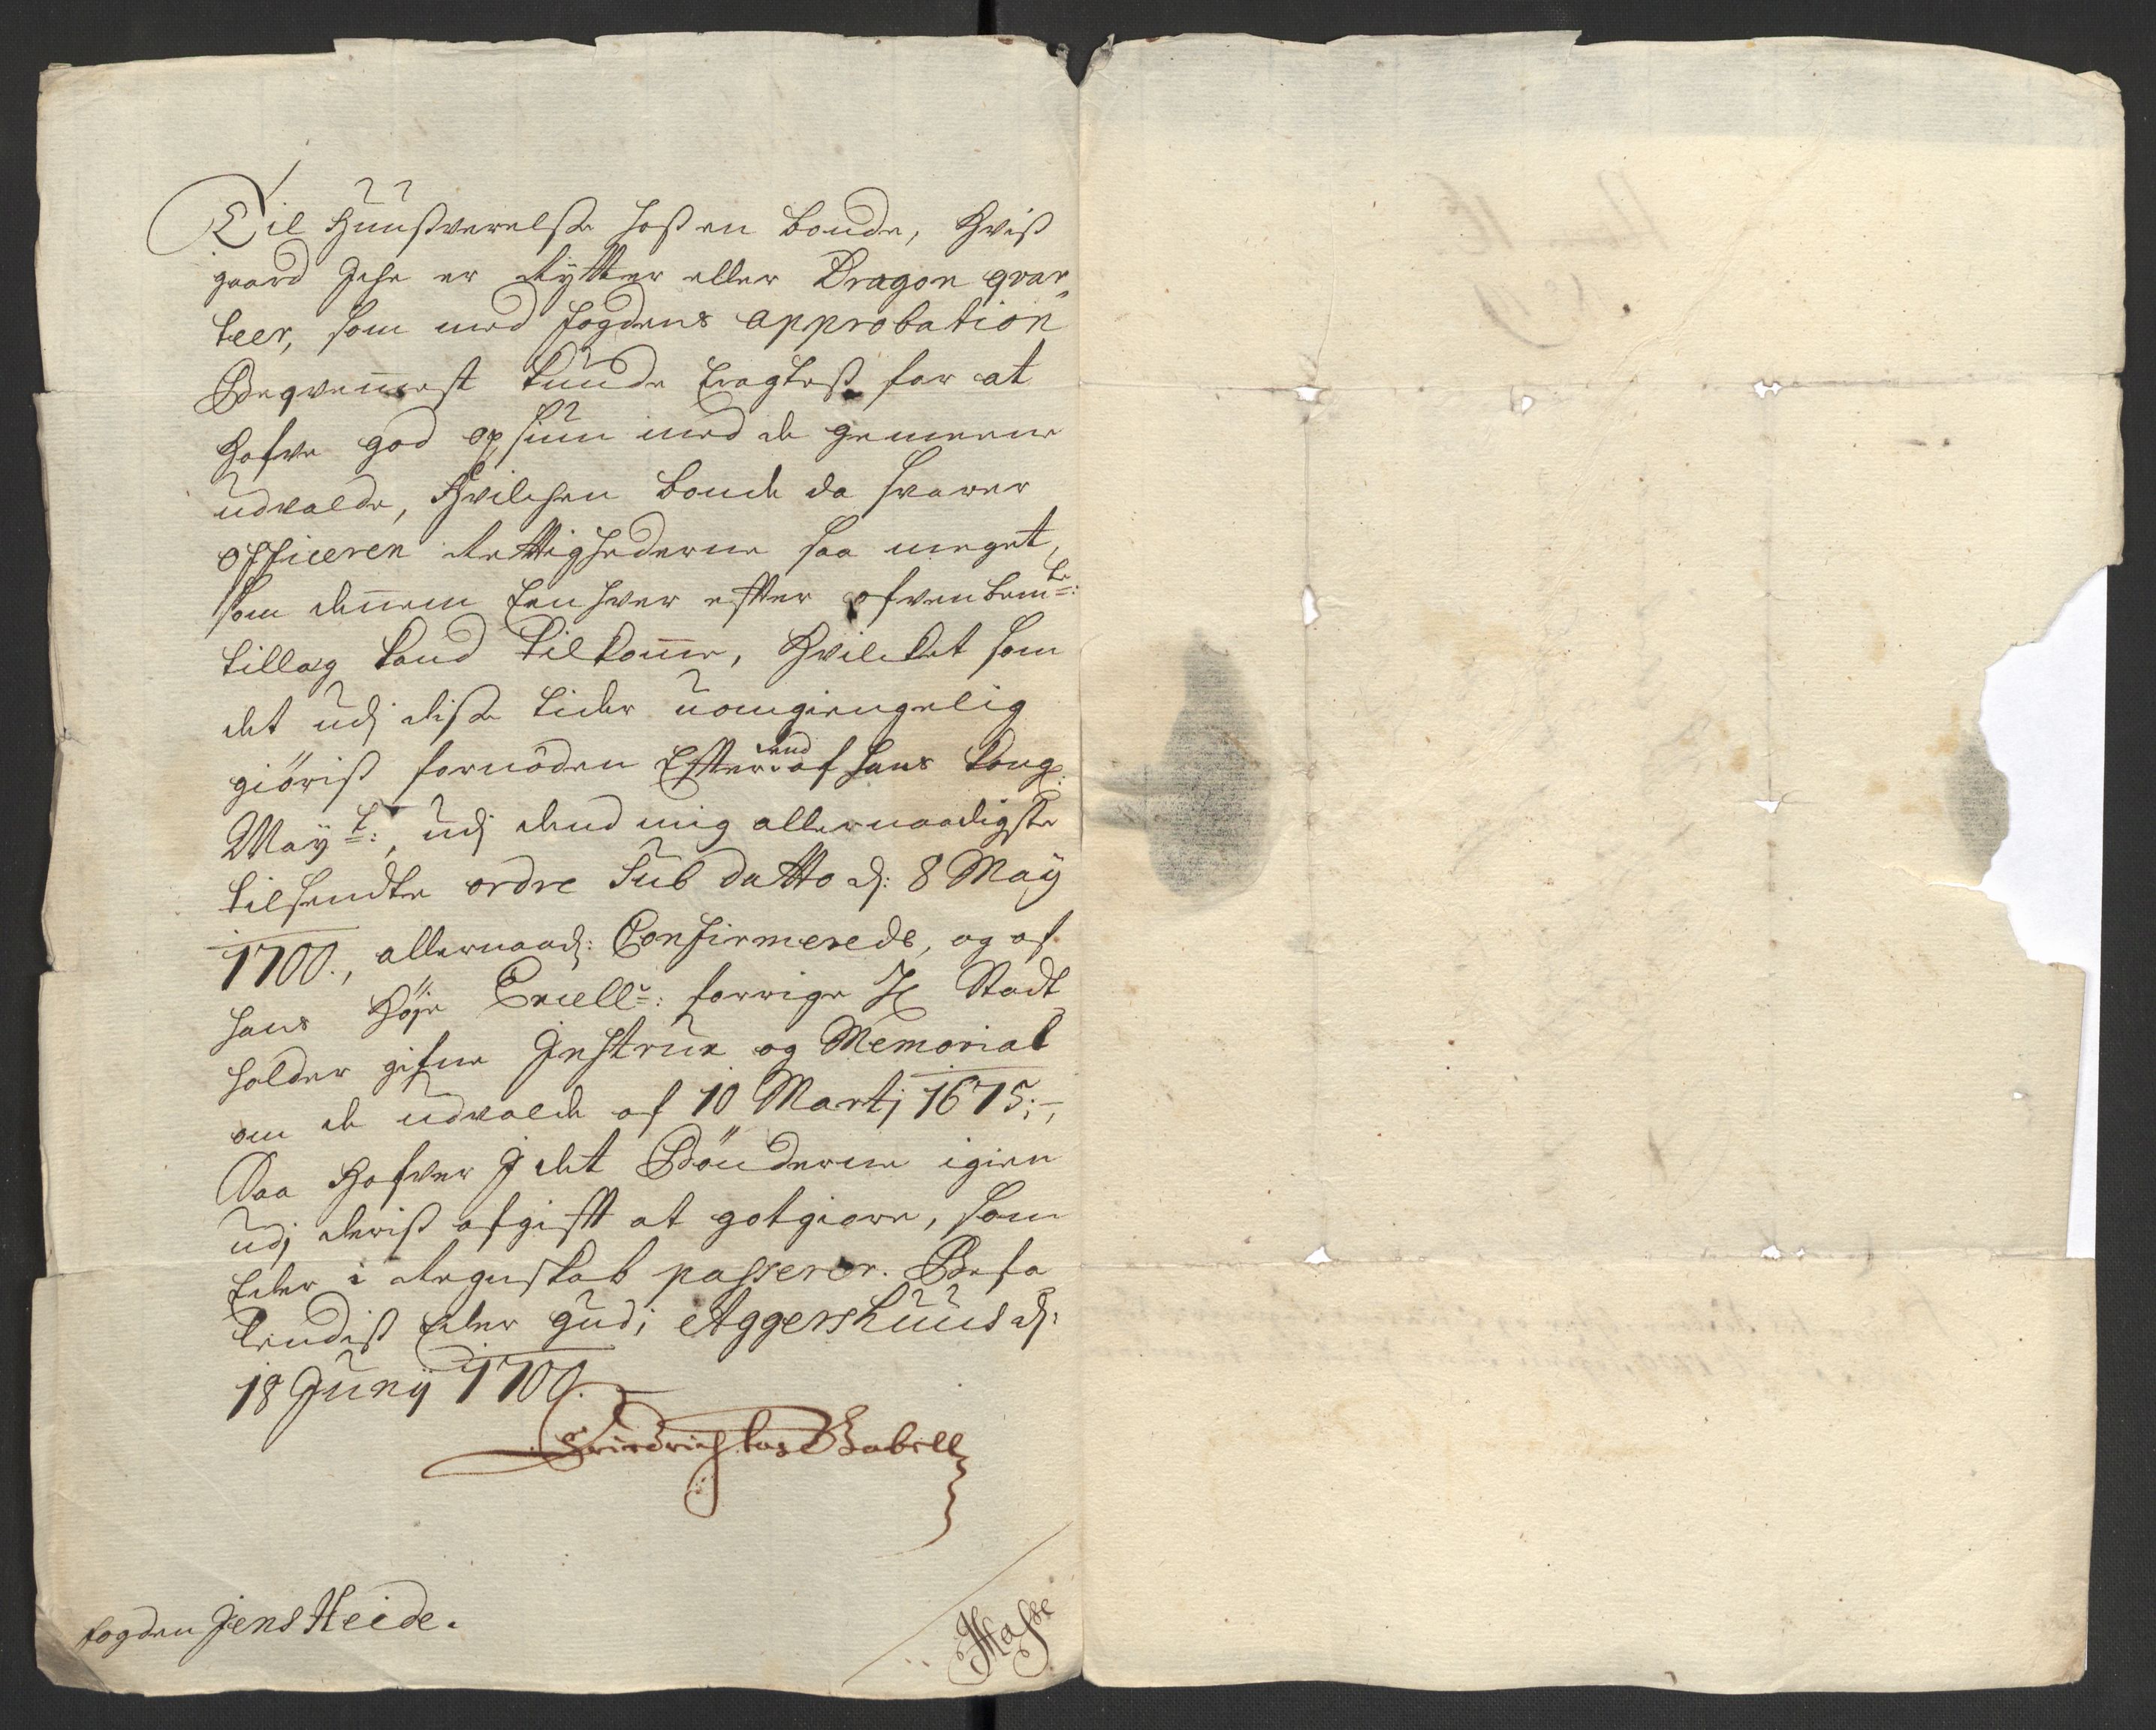 Til Huusverelse hos en bonde, Hvis
gaard Iche er Rytter eller Dragon qvar„
teer, som med fogdens approbation
Beqvemmest kunde eragtes for at
Hafve god opsiun med de gemeene
udvalde, Hvilchen bonde da svarer
officeren Rettighederne saa meget,
som dennem Een hver efter ofvenbemte:
tillæg kand tilkomme, Hvilcket som
det udj disse tider uomgiengelig
giøris fornöden Efftersom af Hans Kong:
Mayt:, udj dend mig allernaadigste
tilsendte ordre Sub datto d: 8 Maÿ
1700., allernaad: Confirmerede, og af
Hans Höje Excell: forrige H Stadt
holder gifne Instrux og Memorial
om de udvalde af 10 Martj 1675;-,
Saa Hafver I det Bönderne igien
udj deris afgifft at gotgiøre, som
Eder i Regnskab passerer. Befa
lendis Eder gud; Aggershuus d:
18 Junij 1700.
Friedrich Gabell
fogden Jens Heide.